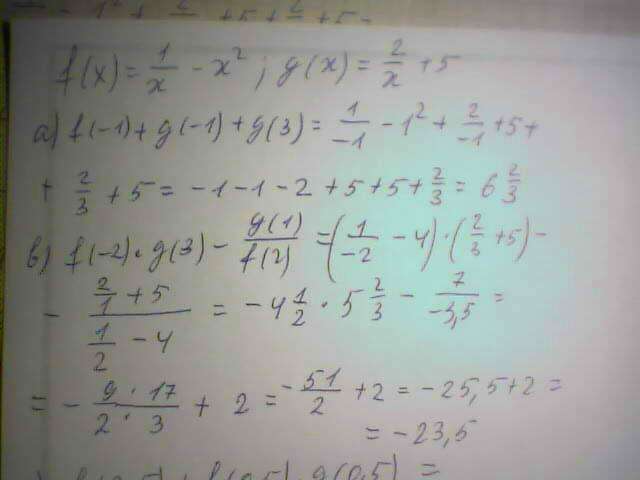 f(x) = 1/x - x²; g(x) = 2/x + 5
а) f(-1) + g(-1) + g(3) = 1/-1 - 1² + 2/-1 + 5 +
+ 2/3 + 5 = -1 - 1 - 2 + 5 + 5 + 2/3 = 6 2/3
в) f(-2) · g(3) - g(1)/f(2) = (1/-2 - 4) · (2/3 + 5) -
- (2/1 + 5)/(1/2 - 4) = -4 1/2 · 5 2/3 - 7/-3,5 =
= - 9 · 17/2 · 3 + 2 = - 51/2 + 2 = -25,5 + 2 =
= -23,5